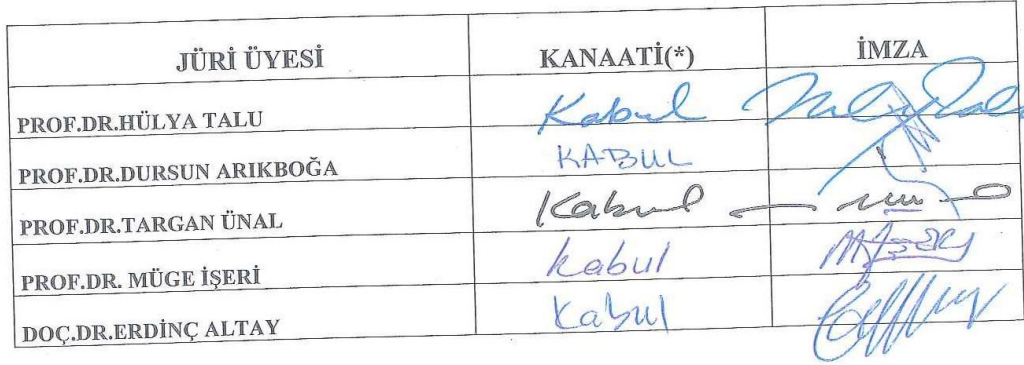 JÜRİ ÜYESİ KANAATİ(*) İMZA
PROF.DR.HÜLYA TALU Kabul
PROF.DR.DURSUN ARIKBOĞA KABUL
PROF.DR.TARGAN ÜNAL Kabul
PROF.DR. MÜGE İŞERİ kabul
DOÇ.DR.ERDİNÇ ALTAY Kabul